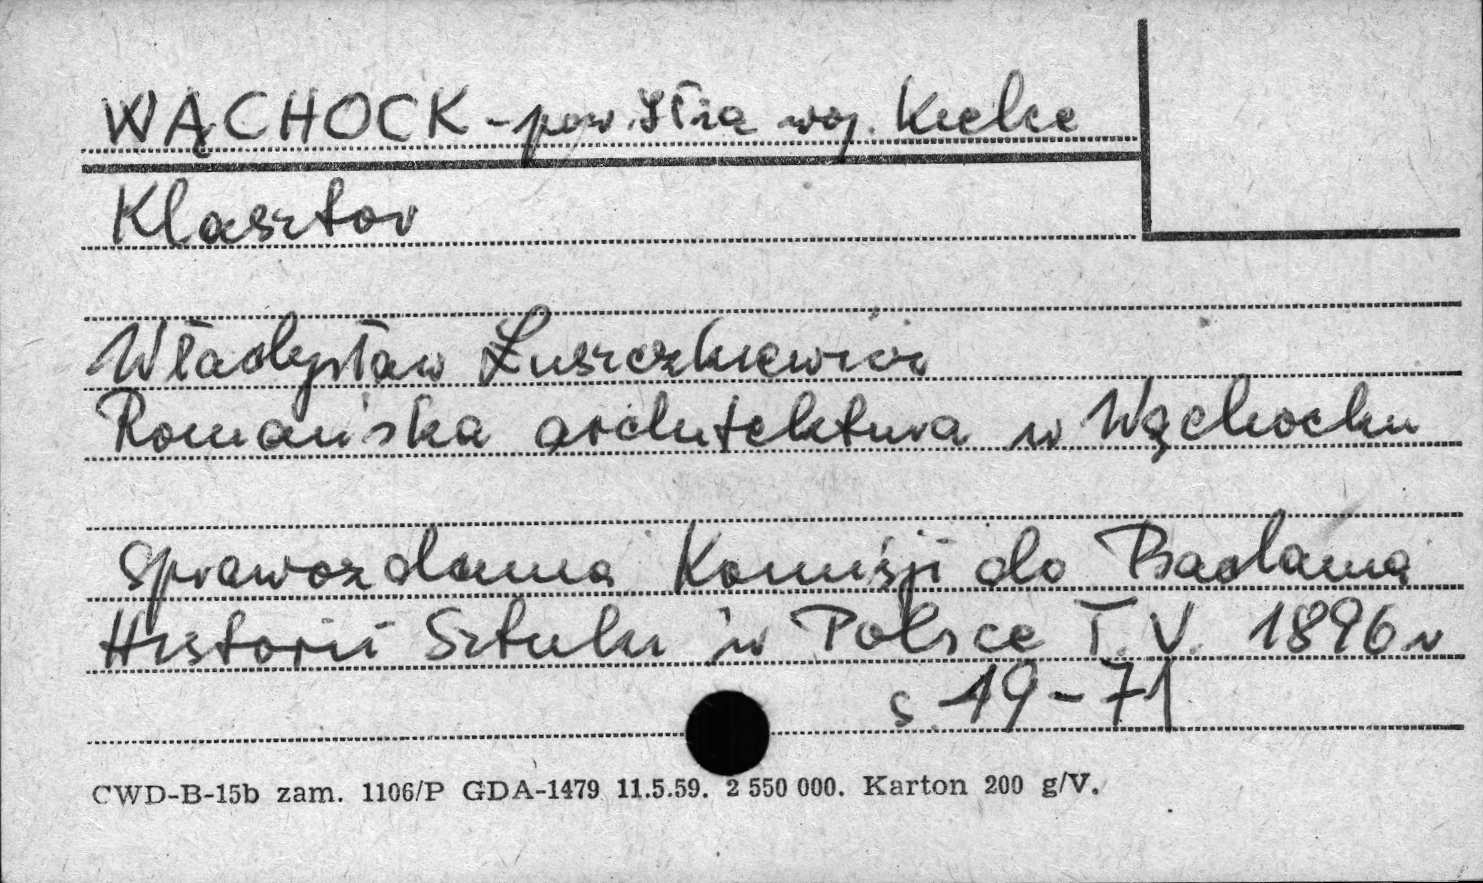 WĄCHOCK - pow. Iłża woj. Kielce
Klasztor
Władysław Łuszczkiewicz
Romańska architektura w Wąchocku
Sprawozdania Komisji do Badania
Historii Sztuki w Polsce T. V. 1896 r
s. 49-71
CWD-B-15b zam. 1106/P GDA-1479 11.5.59. 2 550 000. Karton 200 g/V.